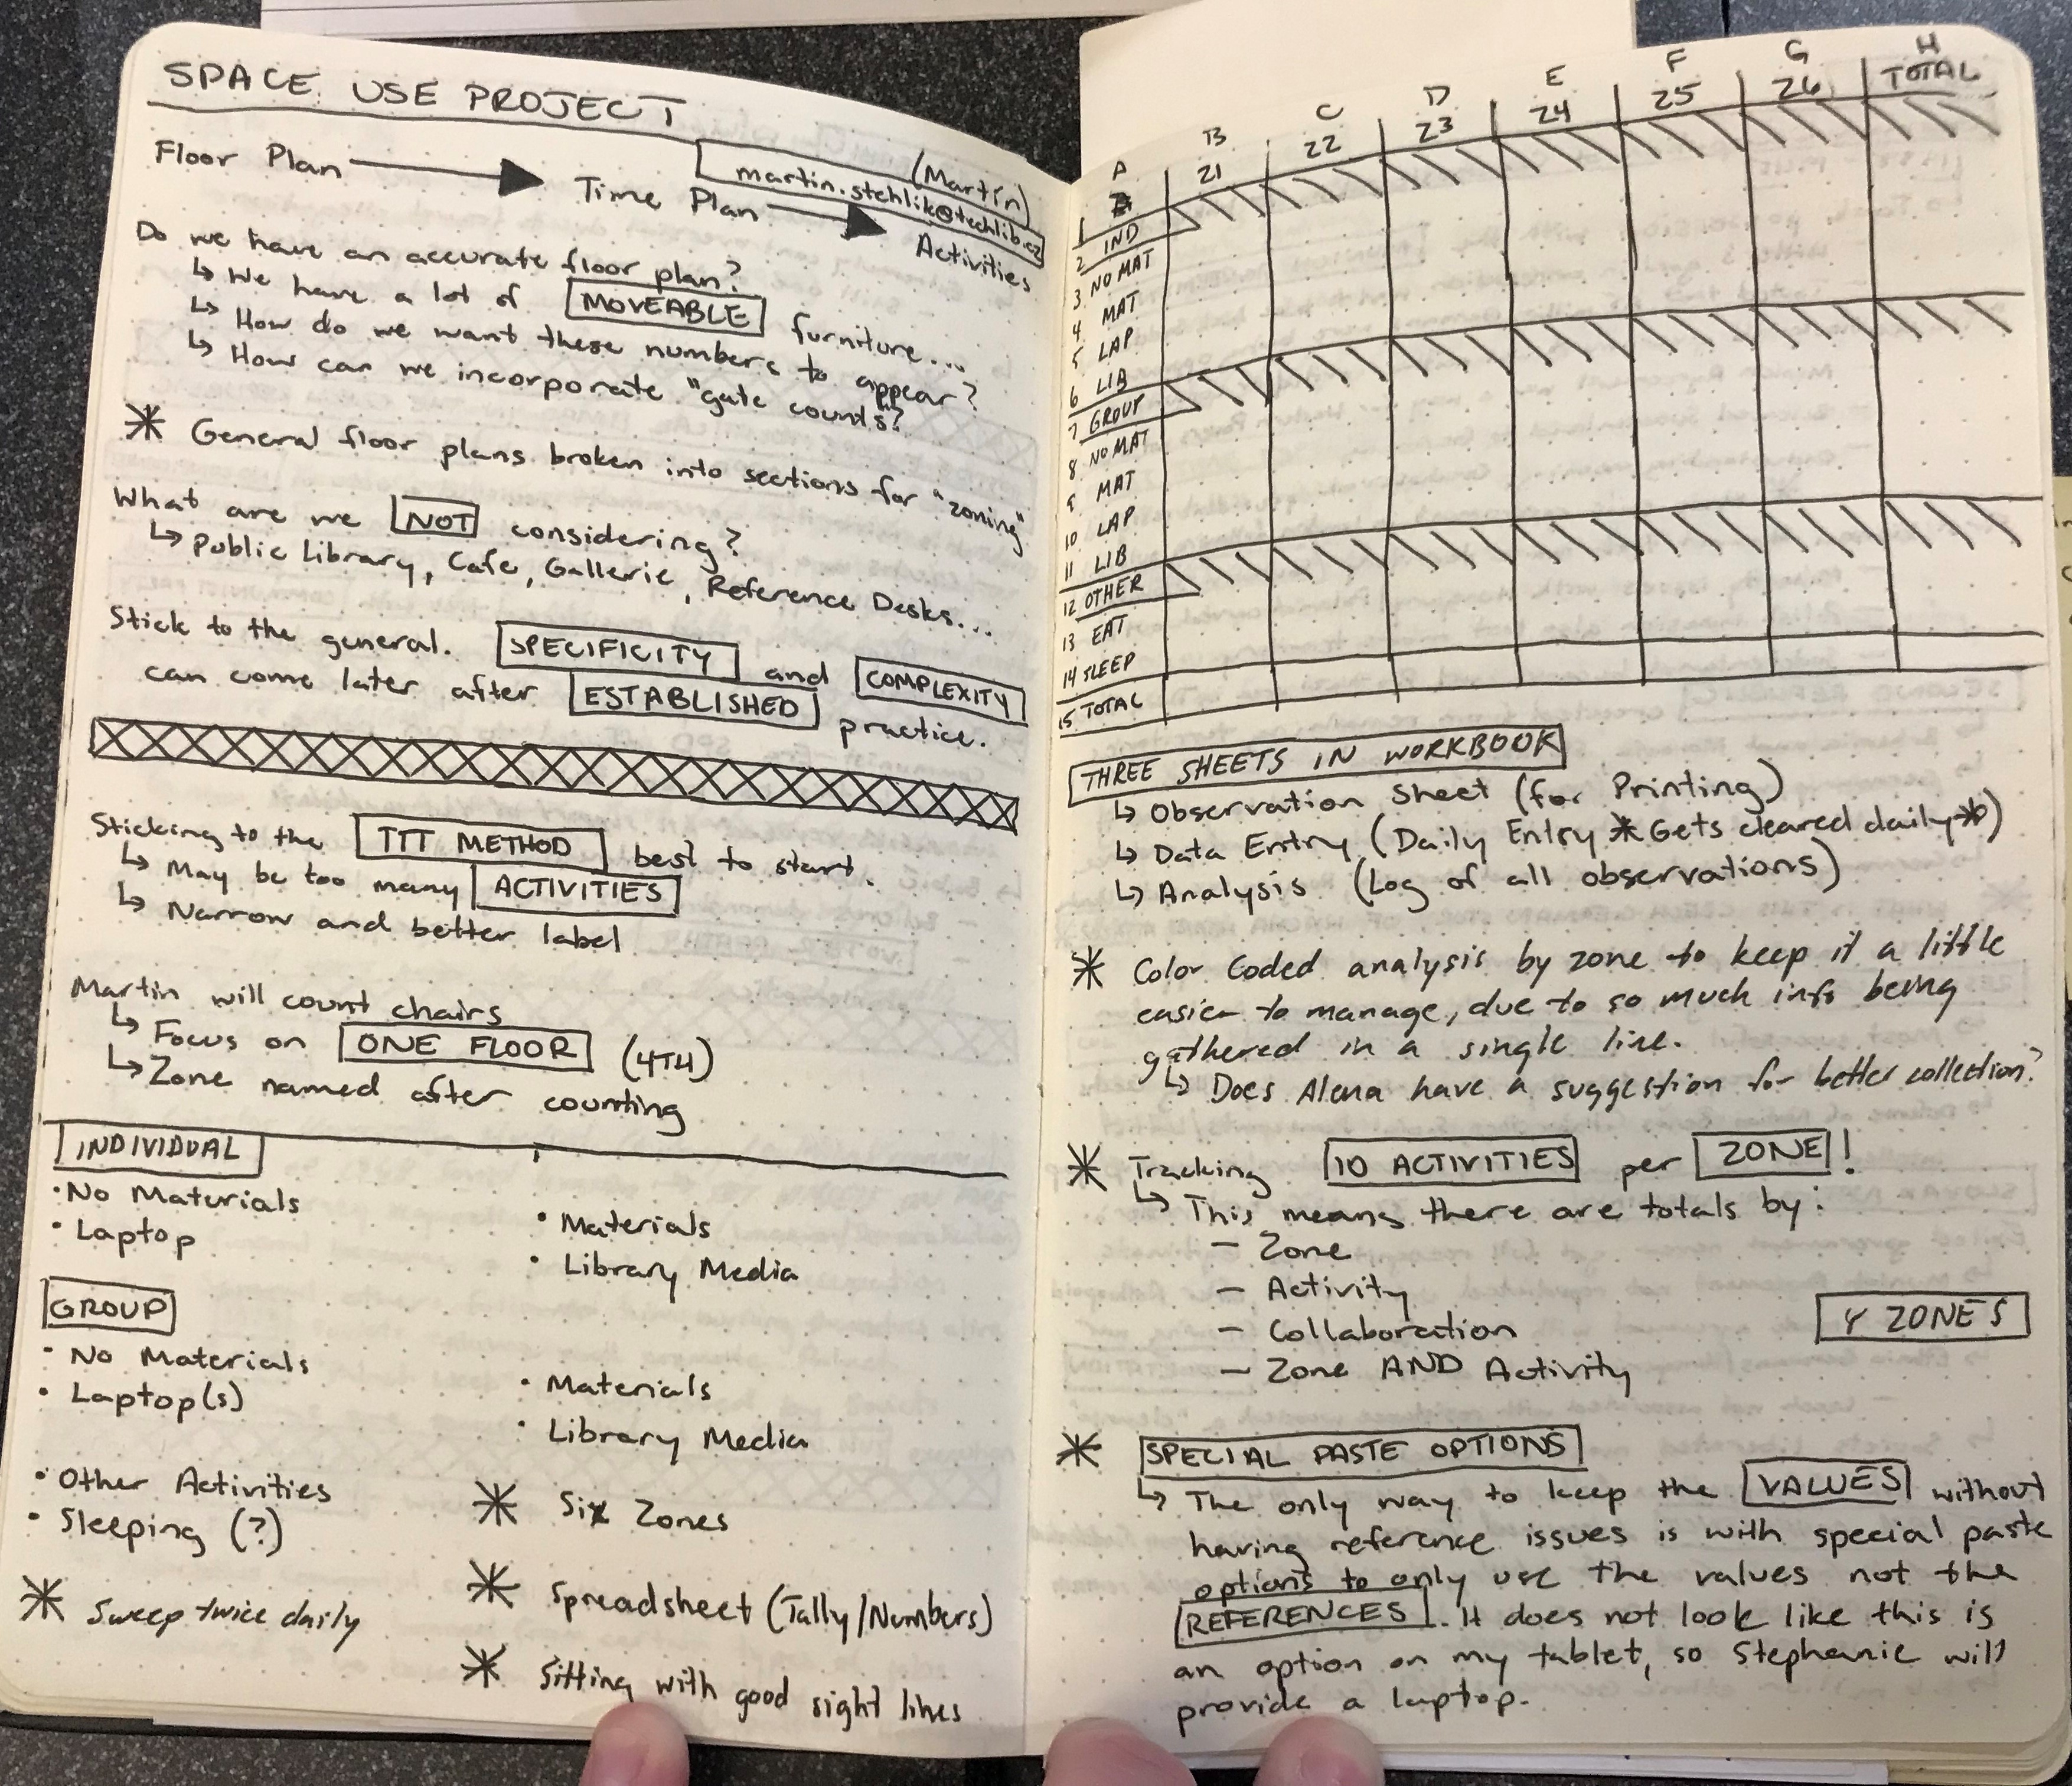 SPACE USE PROJECT
Floor Plan
Time Plan
(Martin)
martin.stehlik@techlib.cz
Activities
Do we have an accurate floor plan?
↳ We have a lot of MOVEABLE furniture...
↳ How do we want these numbers to appear?
↳ How can we incorporate "gate counts"?
* General floor plans broken into sections for "zoning"
What are we NOT considering?
↳ Public Library, Cafe, Gallerie, Reference Desks...
Stick to the general. SPECIFICITY and COMPLEXITY
can come later after ESTABLISHED practice.
Sticking to the TTT METHOD best to start.
↳ May be too many ACTIVITIES
↳ Narrow and better label
Martin will count chairs
↳ Focus on ONE FLOOR (4TH)
↳ Zone named after counting
INDIVIDUAL
• No Materials
• Materials
• Laptop
• Library Media
GROUP
• No Materials
• Materials
• Laptop(s)
• Library Media
• Other Activities
• Sleeping (?)
* Six Zones
* Sweep twice daily
* Spreadsheet (Tally/Numbers)
* Sitting with good sight lines
A B C D E F G H
Z1 Z2 Z3 Z4 Z5 Z6 TOTAL
1
2 IND
3 NO MAT
4 MAT
5 LAP
6 LIB
7 GROUP
8 NO MAT
9 MAT
10 LAP
11 LIB
12 OTHER
13 EAT
14 SLEEP
15 TOTAL
THREE SHEETS IN WORKBOOK
↳ Observation Sheet (for Printing)
↳ Data Entry (Daily Entry *Gets cleared daily*)
↳ Analysis (Log of all observations)
* Color Coded analysis by zone to keep it a little
easier to manage, due to so much info being
gathered in a single line.
↳ Does Alena have a suggestion for better collection?
* Tracking 10 ACTIVITIES per ZONE!
↳ This means there are totals by:
- Zone
- Activity
- Collaboration
- Zone AND Activity
4 ZONES
* SPECIAL PASTE OPTIONS
↳ The only way to keep the VALUES without
having reference issues is with special paste
options to only use the values not the
REFERENCES. It does not look like this is
an option on my tablet, so Stephanie will
provide a laptop.